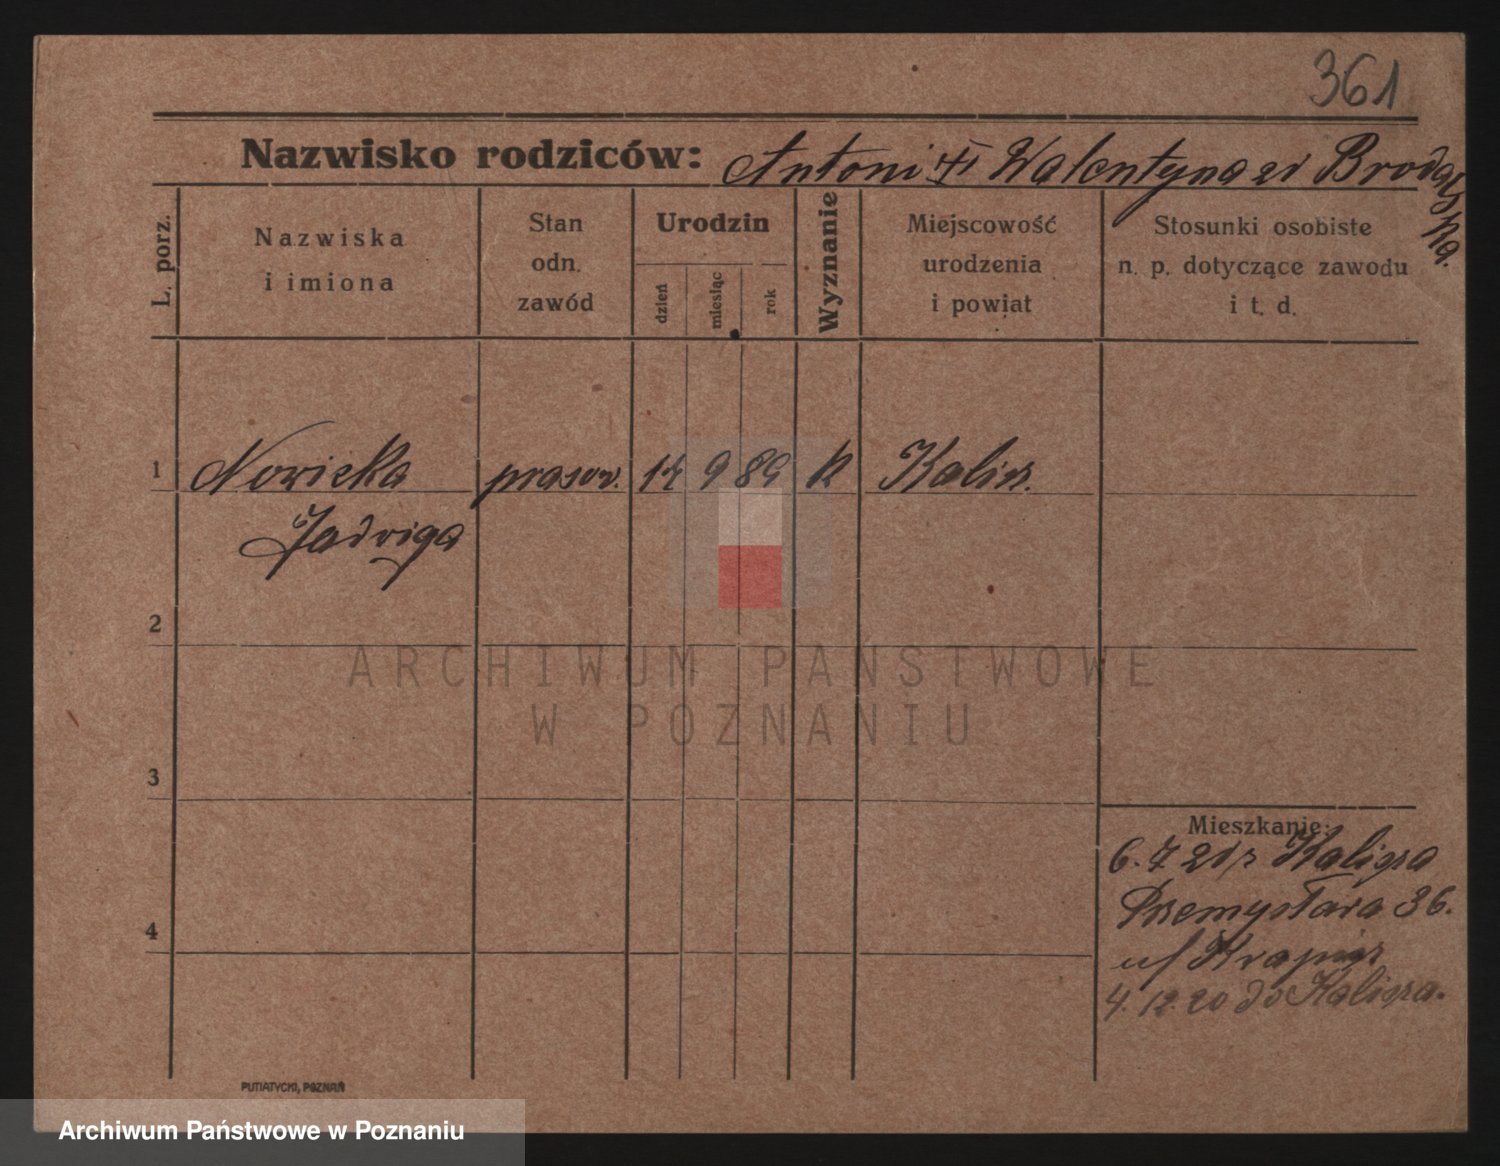 361
Nazwisko rodziców: Antoni Walentyna zd Brodalska.
L. porz.
Nazwiska
i imiona
Stan
odn.
zawód
Urodzin
dzień
miesiąc
rok
Wyznanie
Miejscowość
urodzenia
i powiat
Stosunki osobiste
n. p. dotyczące zawodu
i t. d.
1 Nowicka prasow. 14 9 89 K Kalisz.
Jadwiga
2
ARCHIWUM PAŃSTWOWE
W POZNANIU
3
Mieszkanie:
6. 7 20 z Kalisza
Przemysława 36.
u/
4
4. 12. 20 do Kalisza.
PUTIATYCKI, POZNAŃ
Archiwum Państwowe w Poznaniu